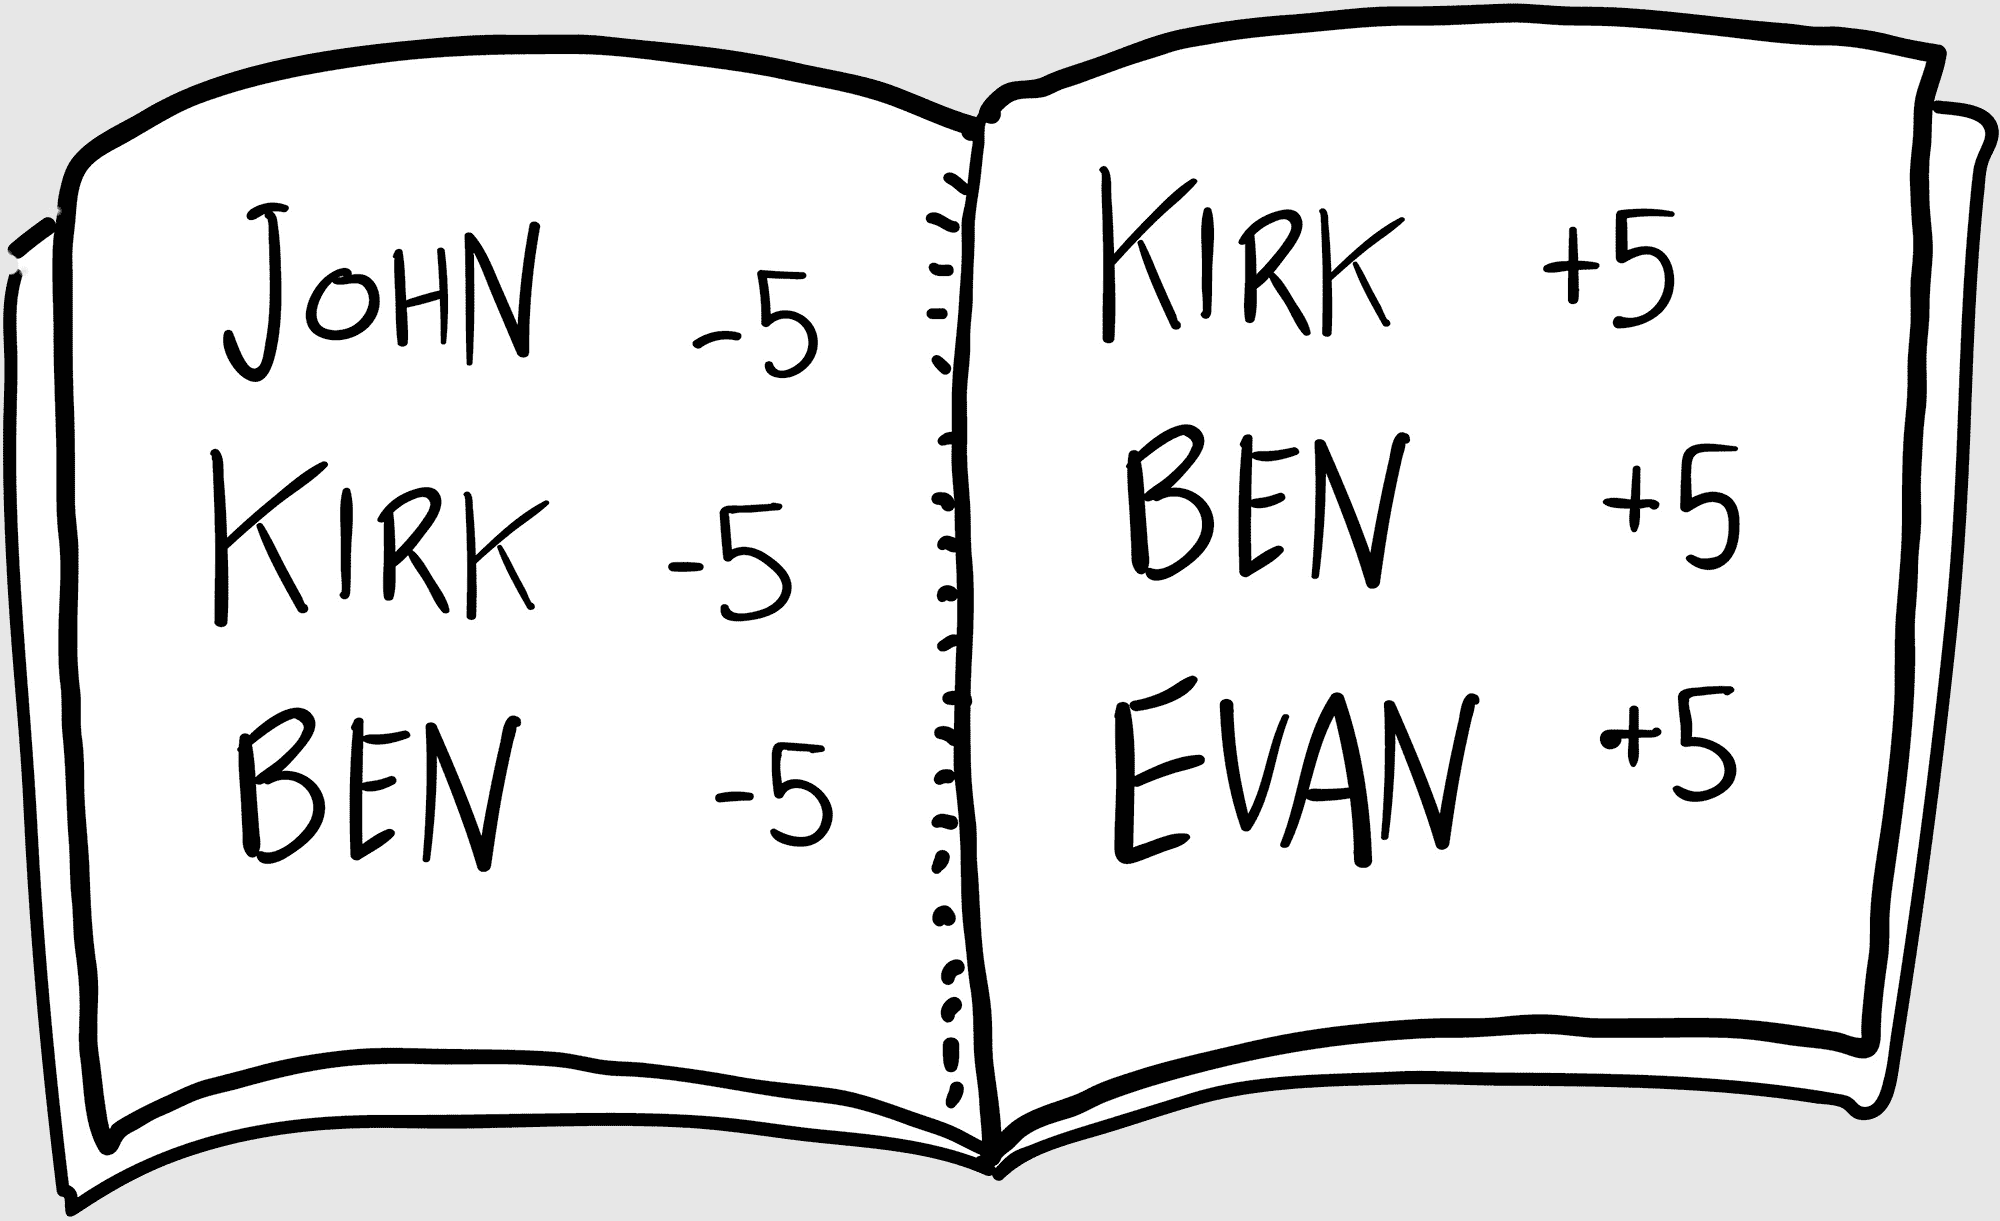 JOHN -5
KIRK -5
BEN -5
KIRK +5
BEN +5
EVAN +5